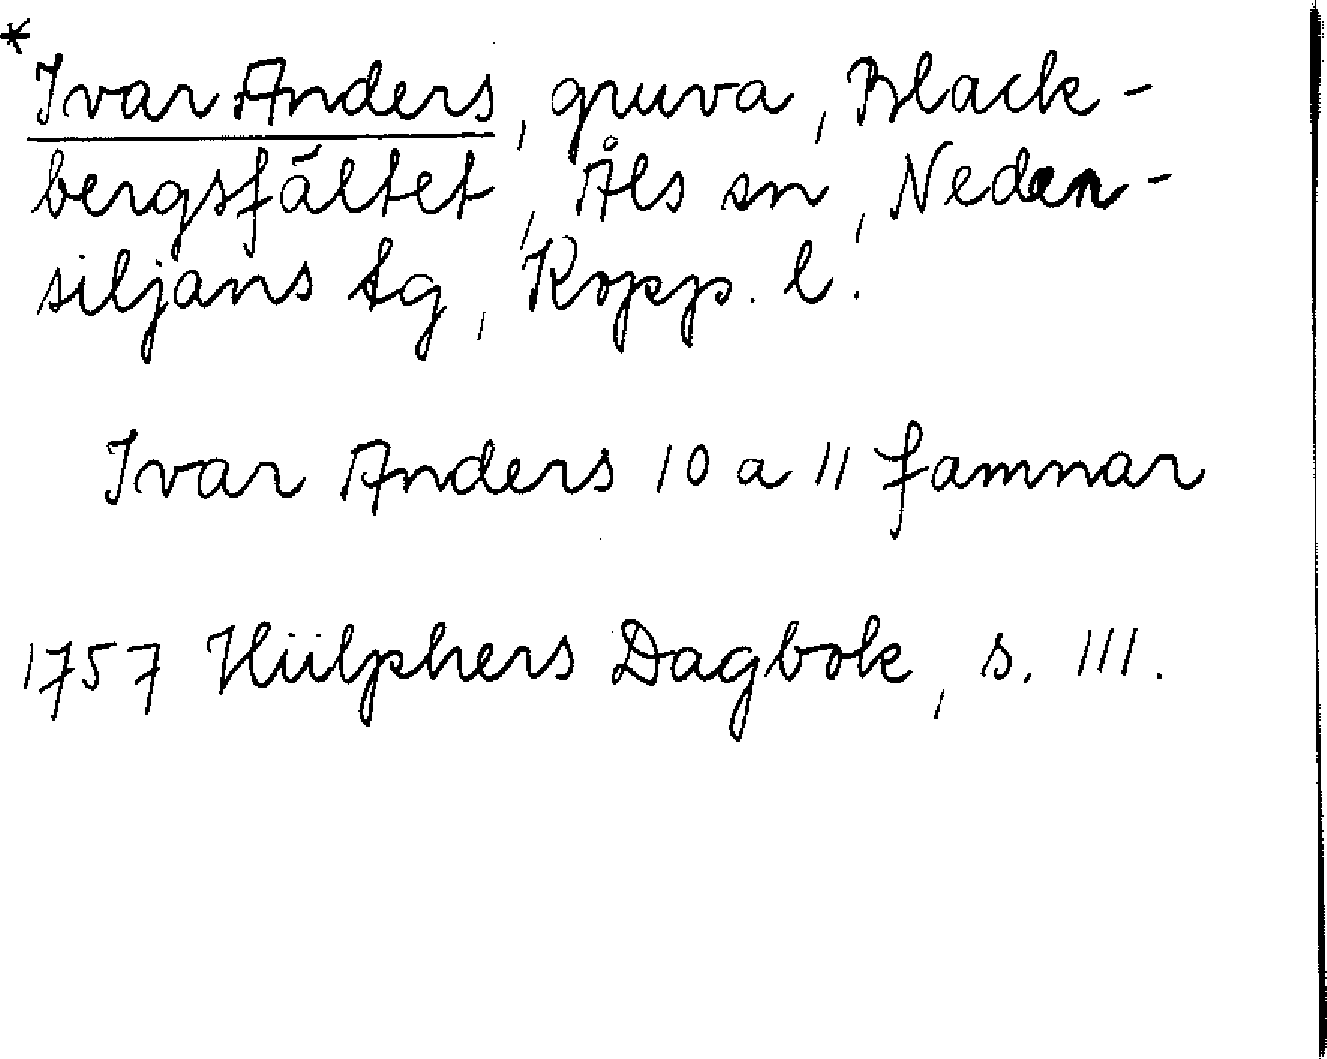 * Ivar Anders, gruva, Black-
bergsfältet, Åls sn, Neden-
siljans tg, Kopp. l.
Ivar Anders 10 a 11 famnar
1757 Hülphers Dagbok, s. 111.